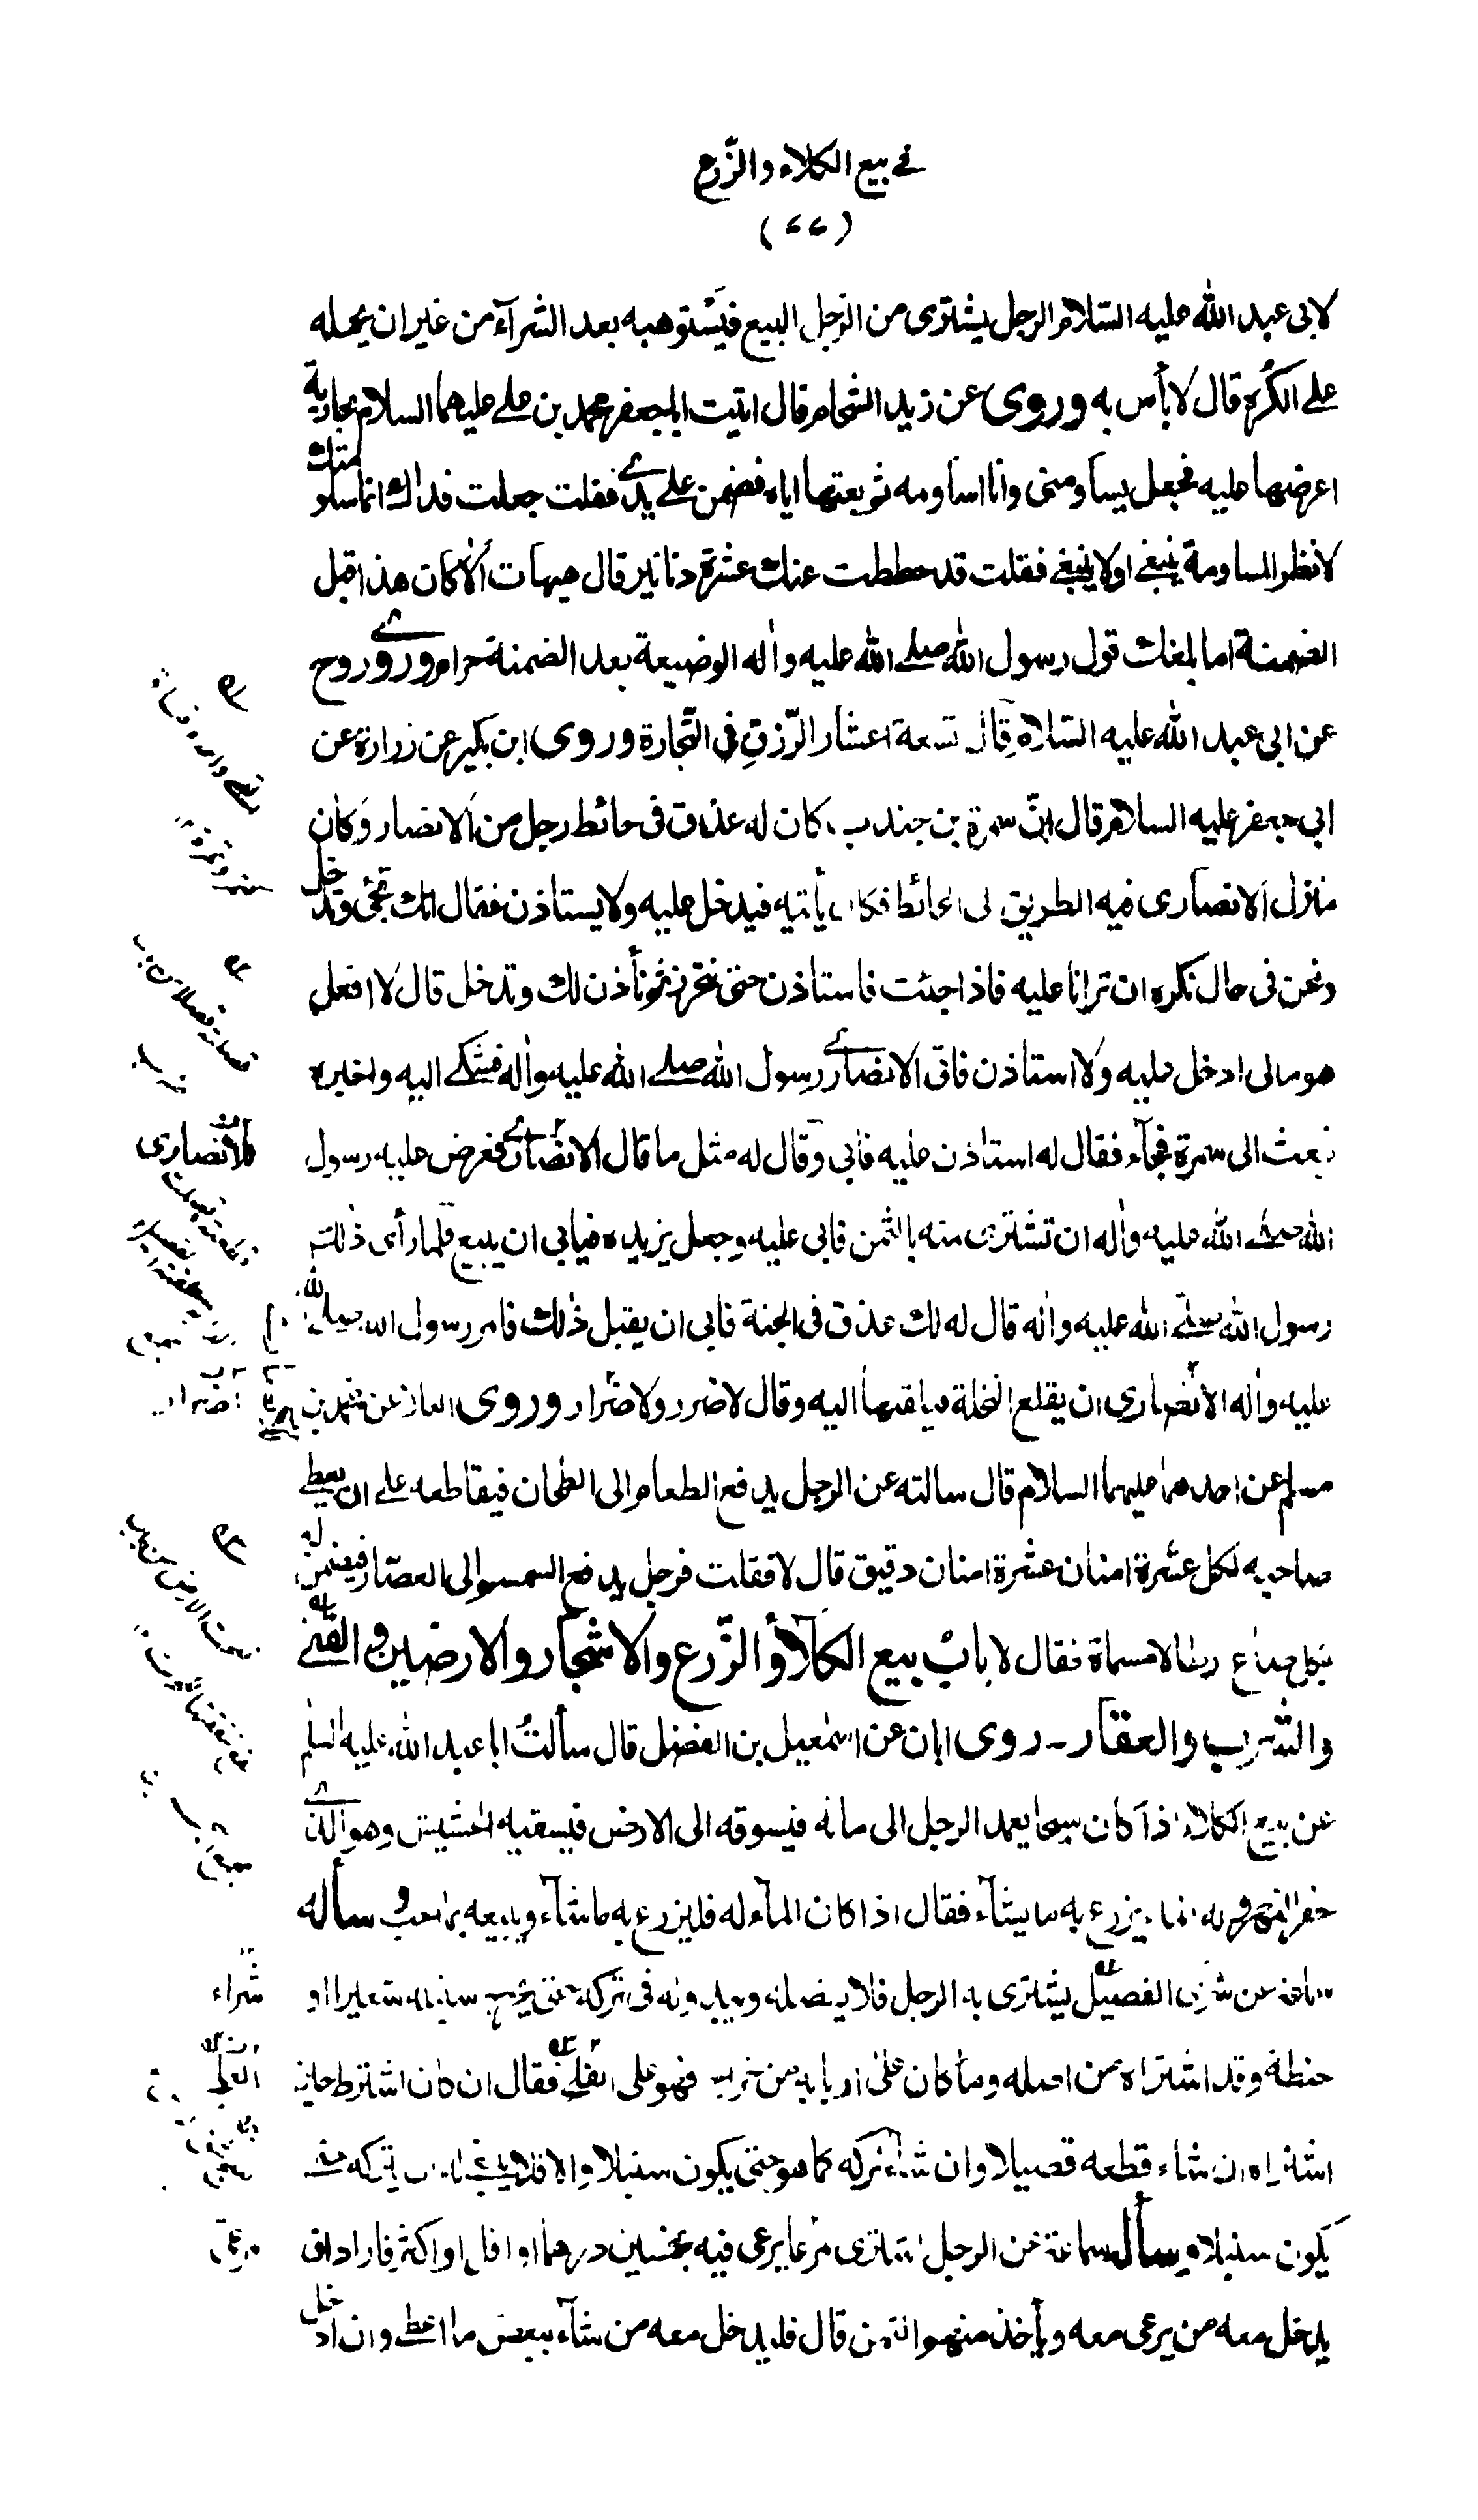 في بيع الكلاء والزّرع
(٧٧)
لابى عبد الله عليه السّلام الرجل يشترى من الرّجل البيع فيَسْتوهبه بعد الشرآء من غير ان يحمله
على الكُره قال لا بأس به وروى عن زيد الشحام قال اتيت اباجعفر محمد بن على عليهما السلام بجارية
اعرضها عليه فجعل يساومنى وانا اساومه ثم بعتها اياه فضمن على يدى فقلت جعلت فداك انما ساومتك
لانظر المساومة ينبغى او لا ينبغى فقلت قد حططت عنك عشرة دنانير قال هيهات الّا كان هذا قبل
الضمنة اما بلغك قول رسول الله صلى الله عليه واٰله الوضيعة بعد الضمنة حرام وروى روح
عن ابى عبد الله عليه السّلام قال تسعة اعشار الرّزقِ فى التّجارة وروى ابن بكير عن زرارة عن
ابى جعفر عليه السلام قال انّ سمرة بن جندب كان له عذق فى حائط رجل من الانصار وكان
منزل الانصارى فيه الطريق الى الحائط فكان يأتيه فيدخل عليه ولا يستاذن فقال انك تجئ وتدخل
ونحن فى حال نكره ان ترانا عليه فاذا جئت فاستاذن حتى نتحرز ثم نأذن لك وتدخل قال لا افعل
هو مالى ادخل عليه ولا استاذن فاتى الانصارى رسول الله صلى الله عليه واٰله فشكى اليه واخبره
فبعث الى سمرة فجآء فقال له استاذن عليه فابى وقال له مثل ما قال الانصارى فعرض عليه رسول
الله صلى الله عليه واٰله ان تشترى منه بالثمن فابى عليه وجعل يزيده فيابى ان يبيع فلما رأى ذلك
رسول الله صلى الله عليه واٰله قال له لك عذق فى الجنة فابى ان يقبل ذلك فامر رسول الله صلى الله
عليه واٰله الانصارى ان يقلع النخلة فيلقيها اليه وقال لا ضرر ولا ضرار وروى العلا عن محمد بن
مسلم عن احدهما عليهما السلام قال سالته عن الرجل يدفع الطعام الى الطحان فيقاطعه على ان يعطى
صاحبه لكل عشرة امنان عشرة امنان دقيق قال لا فقلت فرجل يدفع السمسم الى العصّار فيضمن له
لكل صاع ارطالا مسماة فقال لا بابُ بيع الكلأ والزّرع والاشجار والارضين و القنى
والشرب والعقار ـ روى ابان عن اسمٰعيل بن الفضل قال سألتُ ابا عبد الله عليه السلم
عن بيع الكلاء اذا كان سيحا يعمد الرجل الى مائه فيسوقه الى الارض فيسقيه الحشيش وهو الذى
حفر النهر وله الماء يزرع به ما يشآء فقال اذا كان المآء له فليزرع به ما شآء ويبيعه بما احبّ و سأله
سماعة عن شرى القصيل يشترى به الرجل فلا يفصله ويبدو له فى تركه حتى يخرج سنبله شعيرا او
حنطة وقد اشتراه من اصله وما كان على اربابه من خراج فهو على فقال ان كان اشترط حين
اشتراه ان شاء قطعه قصيلا وان شاء تركه كما هو حتى يكون سنبلا والا فلا ينبغى ان يتركه حتى
يكون سنبلا وسأل سماعة عن الرجل اشترى مرعا يرعى فيه بخمسين درهما او اقل او اكثر فاراد ان
يدخل معه من يرعى معه ويأخذ منهم الثمن قال فليدخل معه من شآء ببعض ما اعطى وان ادخل
للانصارى
شراء
مرعى